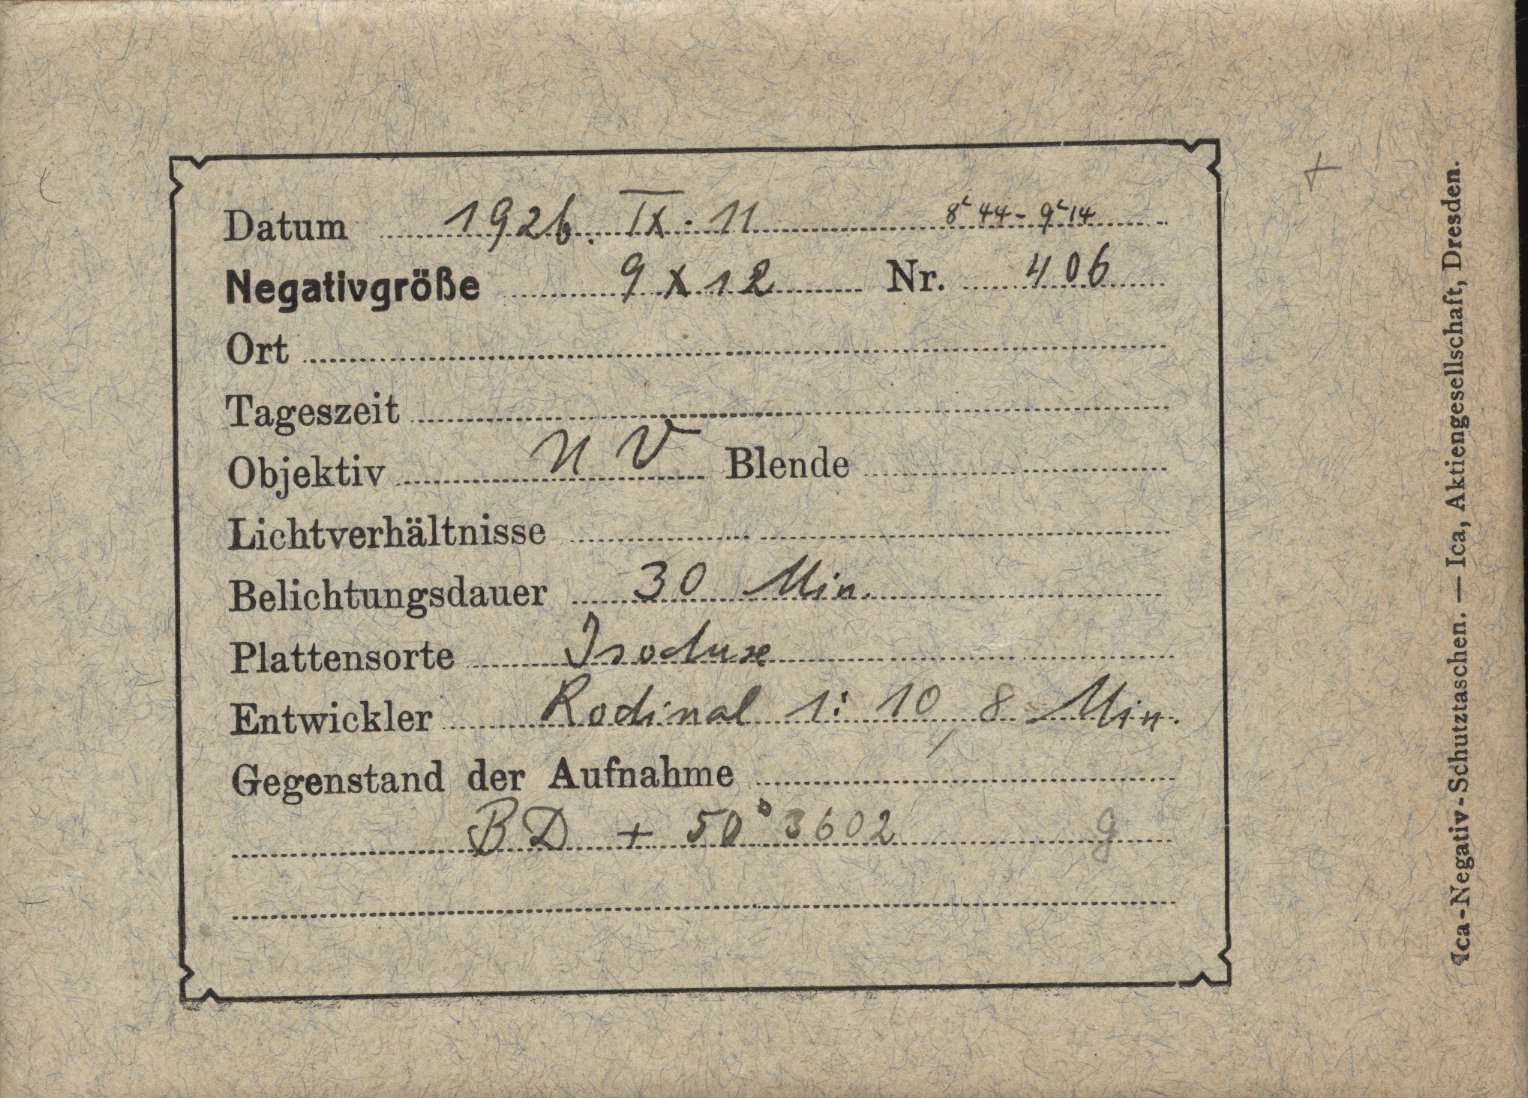 Datum 1926. IX. 11 8ʰ 44 - 9ʰ 14
Negativgröße 9 x 12 Nr. 406
Ort
Tageszeit
Objektiv U V Blende
Lichtverhältnisse
Belichtungsdauer 30 Min.
Plattensorte Isoduxe
Entwickler Rodinal 1:10, 8 Min.
Gegenstand der Aufnahme
BD + 50° 3602 g
Ica-Negativ-Schutztaschen. — Ica, Aktiengesellschaft, Dresden.